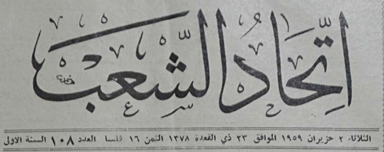 اتحاد الشعب
الثلاثاء ٢ حزيران ١٩٥٩ الموافق ٢٣ ذي القعدة ١٣٧٨ الثمن ١٦ فلسا العدد ١٠٨ السنة الاولى